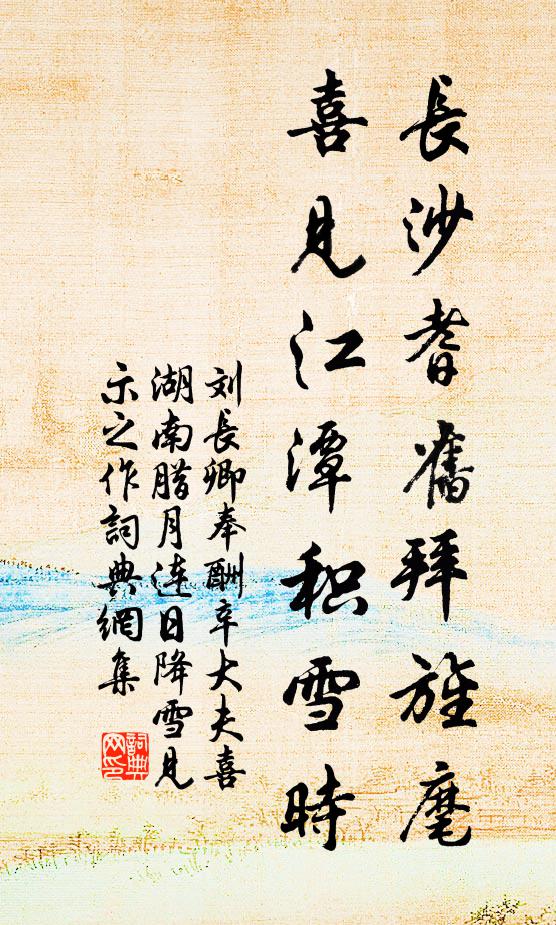 長沙耆舊拜旌麾
喜見江潭积雪時
刘長卿奉酬辛大夫喜
湖南腊月連日降雪見
示之作詞典網集
詞典網印